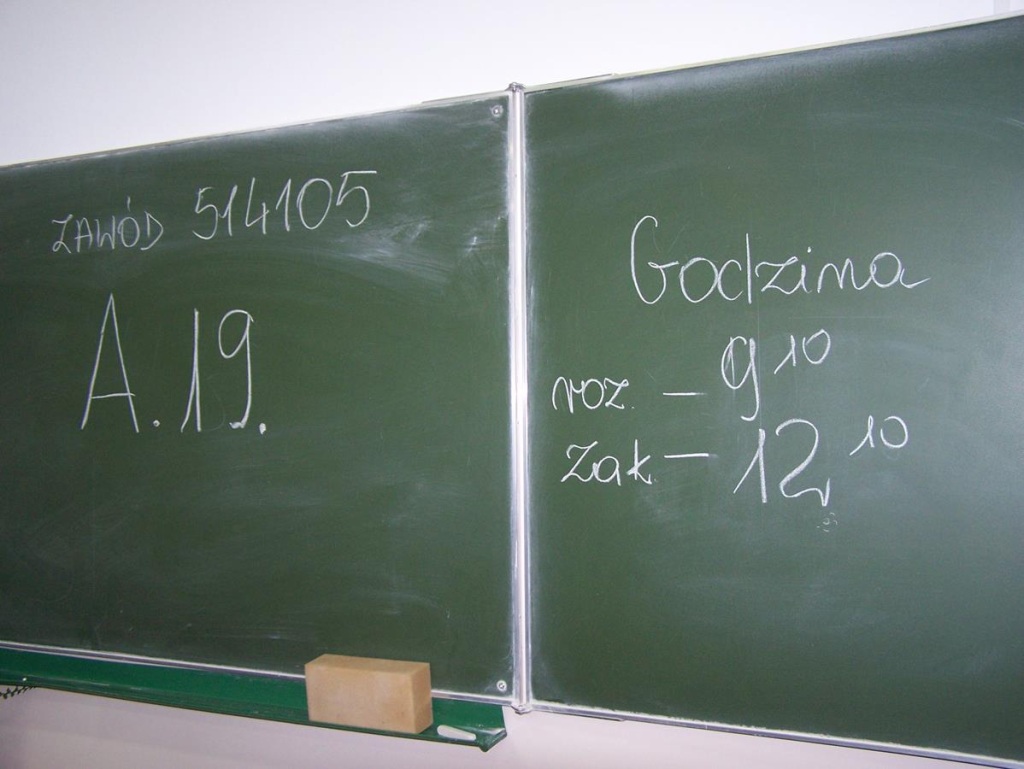 ZAWÓD 514105
A.19.
Godzina
roz. – 9¹⁰
Zak – 12¹⁰